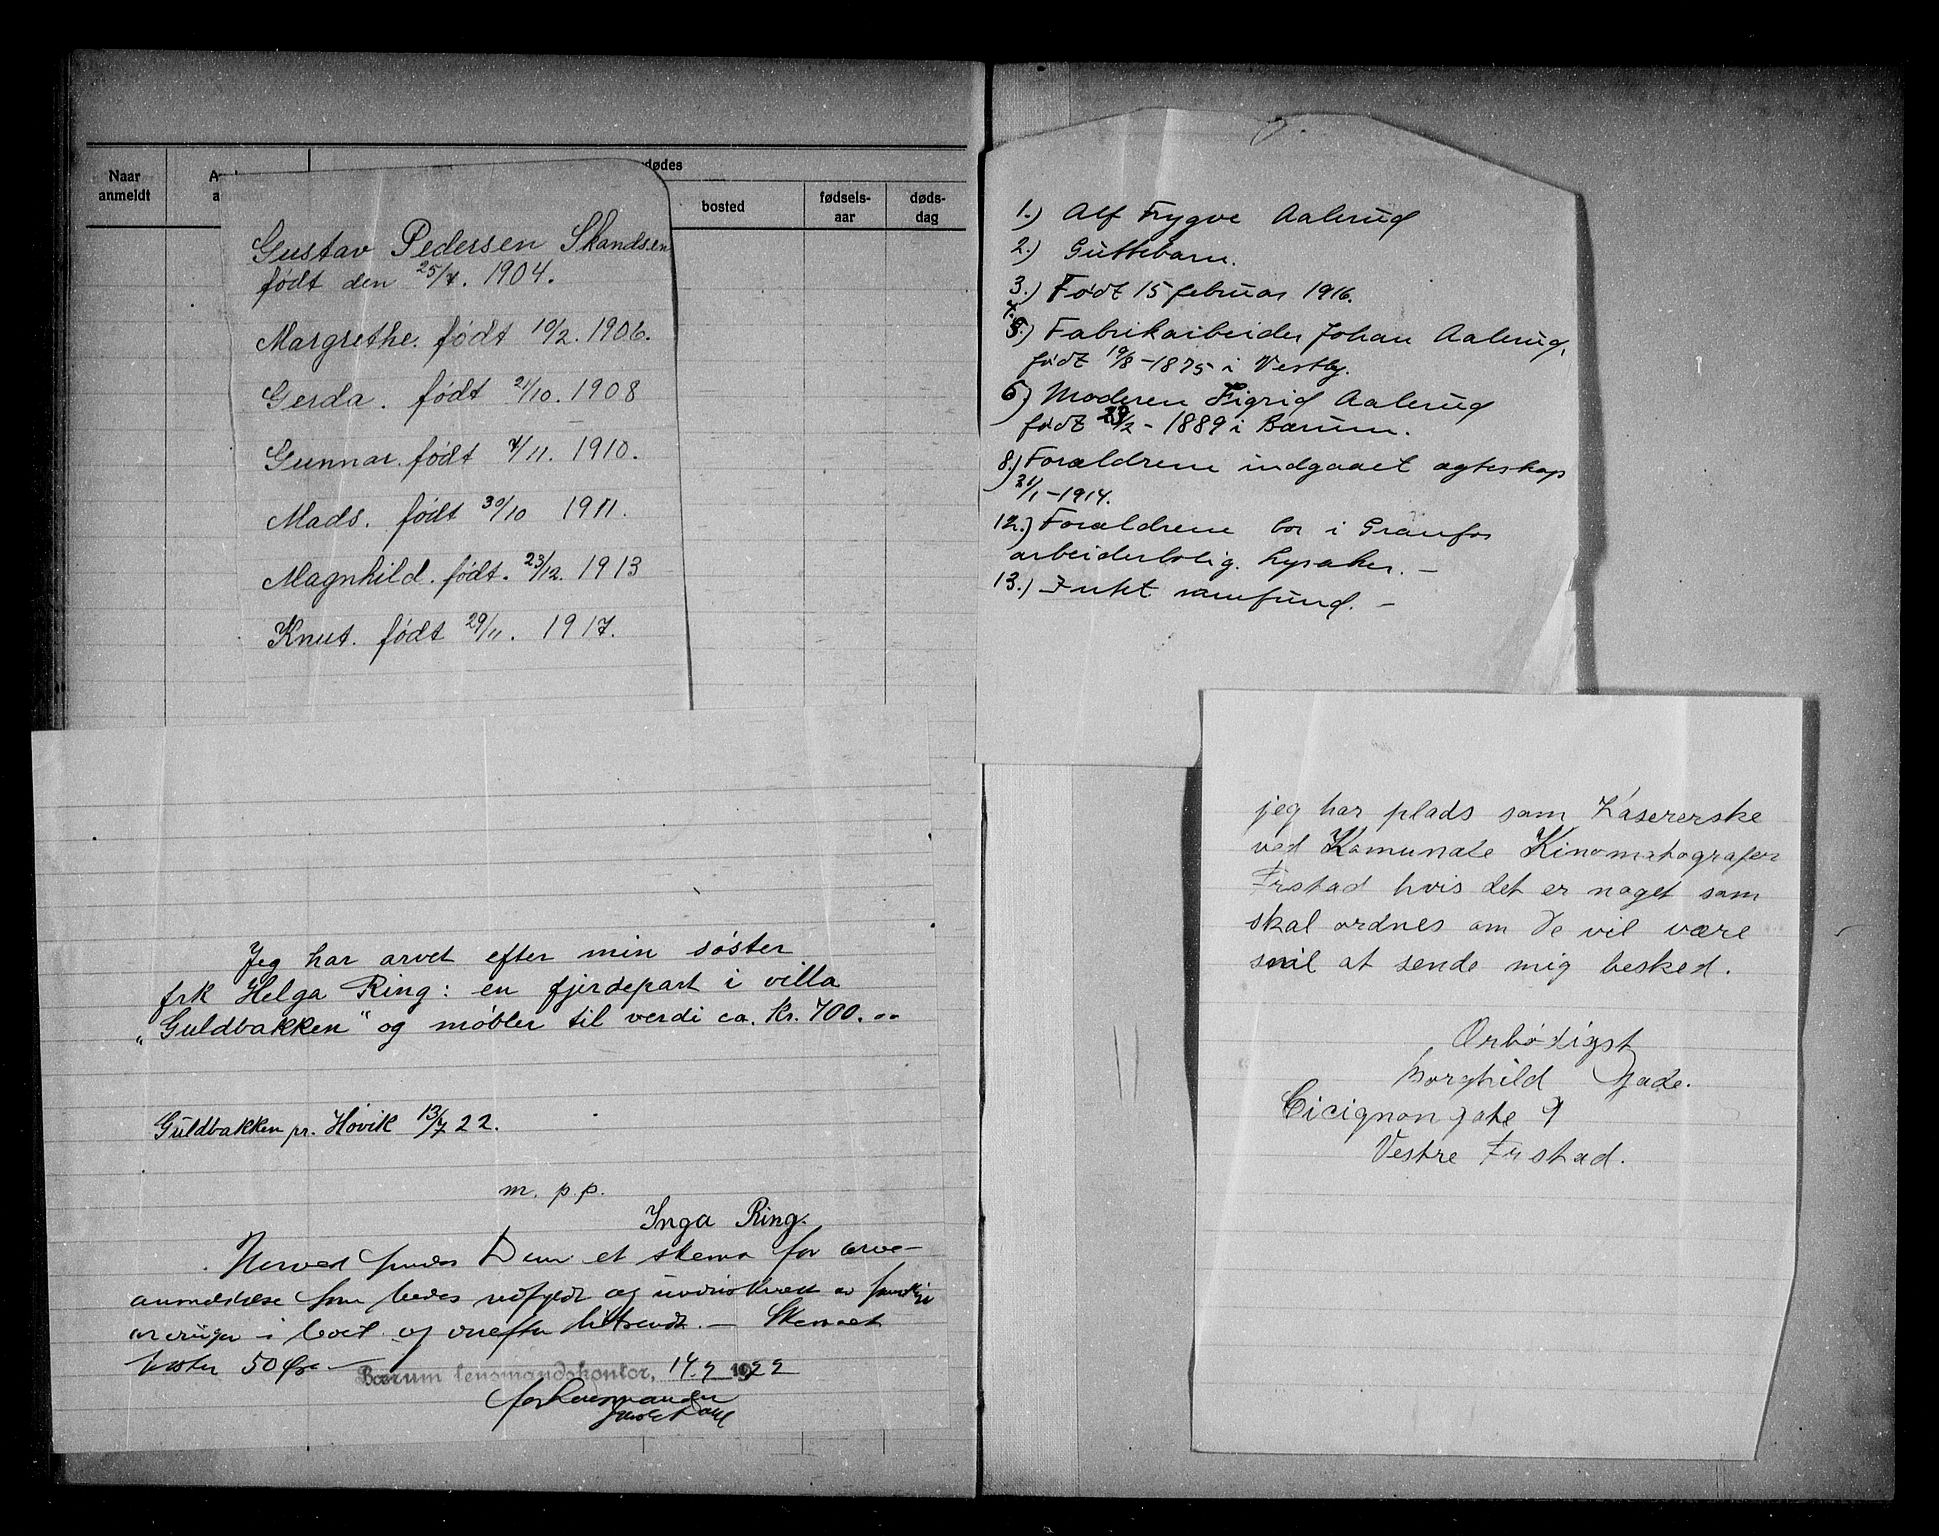 Naar
anmeldt
dødes
bosted
fødsels-
aar
døds-
dag
Gustav Pedersen Skandsen
født den 25/7. 1904.
Margrethe. født 10/2. 1906.
Gerda. født 21/10. 1908
Gunnar. født 4/11. 1910.
Mads. født 30/10 1911.
Magnhild. født. 23/12. 1913
Knut. født 29/11. 1917.
Jeg har arvet efter min søster
frk Helga Ring: en fjerdepart i villa
„Guldbakken" og møbler til verdi ca. Kr. 700.
Guldbakken pr. Høvik 13/7 22.
m. p. p.
Inga Ring.
Herved sendes Dem et skema for arve-
anmeldelse som bedes utfyldt og underskrevet av samtlige
arvinger i boet og derefter tilbakesendt. — Skemaet
koster 50 Øre —
Bærum lensmandskontor, 14.7 1922
for Lensmanden
1.) Alf Trygve Aalerud
2.) Guttebarn.
3.) Født 15 februar 1916.
7.
5.) Fabrikarbeider Johan Aalerud,
født 19/8 - 1875 i Vestby.
6) Moderen Sigrid Aalerud
født 29/2 - 1889 i Bærum.
8.) Forældrene indgaaet ægteskap
31/1 - 1914.
12.) Forældrene bor i Granfos
arbeiderbolig. Lysaker. —
13.) Intet samfund. —
jeg har plads som Kasererske
ved Komunale Kinomatografer
Frstad hvis det er noget som
skal ordnes om De vil være
snil at sende mig besked.
Ærbødigst
Borghild Gade.
Cicignongate 9
Vestre Frstad.